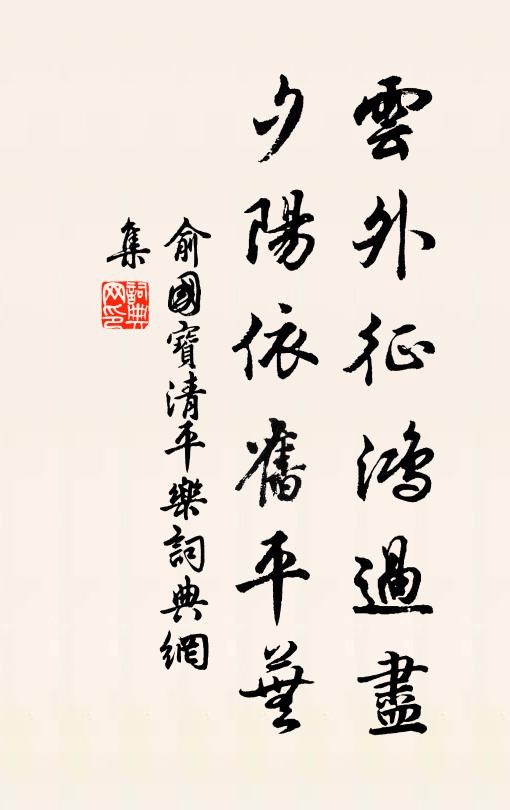 雲外征鴻過盡
夕陽依舊平蕪
俞國寶清平樂詞典網
集
詞典网印